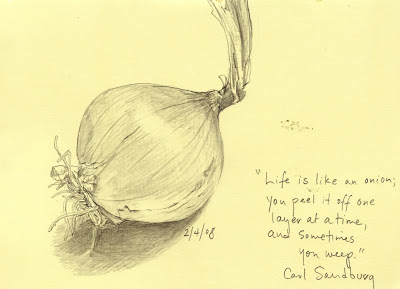 2/4/08
"Life is like an onion;
you peel it off one
layer at a time,
and sometimes
you weep."
Carl Sandburg